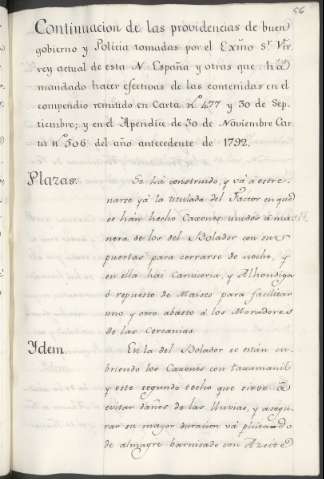 56
Continuacion de las providencias de buen
gobierno y Policia tomadas por el Exmo Sr. Vir-
rey actual de esta N. España y otras que ha
mandado hacer efectivas de las contenidas en el
compendio remitido en Carta nº 477 y 30 de Sep-
tiembre; y en el Apendice de 30 de Noviembre Car-
ta nº 506 del año antecedente de 1792.
Plazas. Se há construido, y vá á estre-
narse yá la titulada del Factor en que
se han hecho Caxones unidos á ma-
nera de los del Bolador con sus
puertas para cerrarse de noche, y
en ella hai Carniceria, y Alhondiga
ó repuesto de Maices para facilitar
uno y otro abasto á los Moradores
de las Cercanias
Ydem. En la del Bolador se están cu-
briendo los Caxones con taxamanil
y este segundo techo que sirve á
evitar daños de las lluvias, y asegu-
rar su mayor duracion vá
de almagre barnizado con Azeite